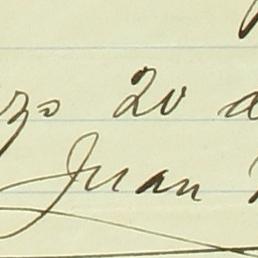 zo 20 d
Juan